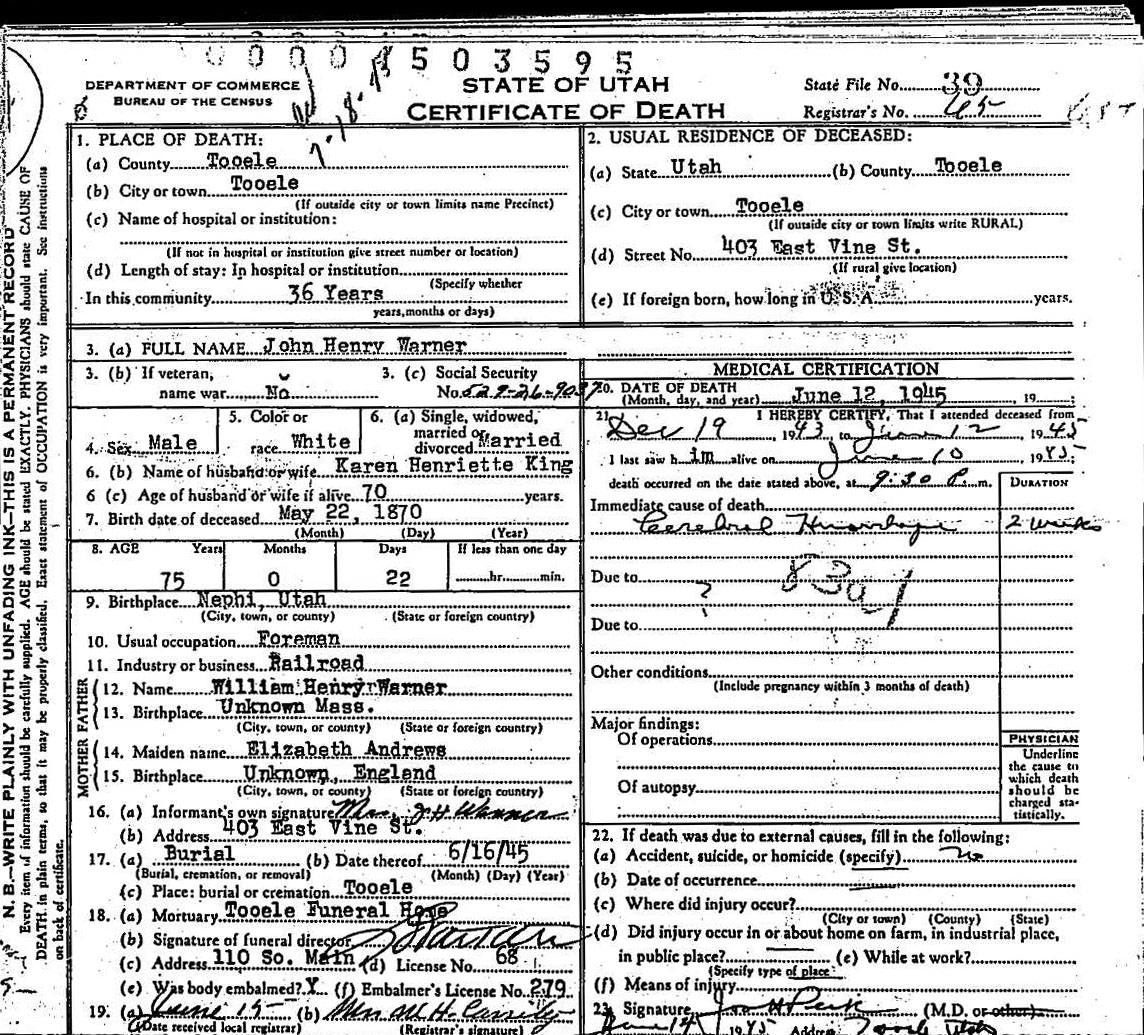 0 0 0 1 5 0 3 5 9 5
DEPARTMENT OF COMMERCE
BUREAU OF THE CENSUS
STATE OF UTAH
CERTIFICATE OF DEATH
State File No. 39
Registrar's No. 65
N. B.—WRITE PLAINLY WITH UNFADING INK—THIS IS A PERMANENT RECORD
Every item of information should be carefully supplied. AGE should be stated EXACTLY. PHYSICIANS should state CAUSE OF
DEATH in plain terms, so that it may be properly classified. Exact statement of OCCUPATION is very important. See instructions
on back of certificate.
1. PLACE OF DEATH:
(a) County Tooele
(b) City or town Tooele
(If outside city or town limits name Precinct)
(c) Name of hospital or institution:
(If not in hospital or institution give street number or location)
(d) Length of stay: In hospital or institution
(Specify whether
In this community 36 Years
years, months or days)
2. USUAL RESIDENCE OF DECEASED:
(a) State Utah (b) County Tooele
(c) City or town Tooele
(If outside city or town limits write RURAL)
(d) Street No. 403 East Vine St.
(If rural give location)
(e) If foreign born, how long in U. S. A. years.
3. (a) FULL NAME John Henry Warner
3. (b) If veteran, name war No
3. (c) Social Security No. 529-26-9037
4. Sex Male
5. Color or race White
6. (a) Single, widowed, married or divorced Married
6. (b) Name of husband or wife Karen Henriette King
6 (c) Age of husband or wife if alive 70 years.
7. Birth date of deceased May 22, 1870
(Month) (Day) (Year)
8. AGE Years Months Days If less than one day
75 0 22 hr. min.
9. Birthplace Nephi, Utah
(City, town, or county) (State or foreign country)
10. Usual occupation Foreman
11. Industry or business Railroad
FATHER
12. Name William Henry Warner
13. Birthplace Unknown Mass.
(City, town, or county) (State or foreign country)
MOTHER
14. Maiden name Elizabeth Andrews
15. Birthplace Unknown, England
(City, town, or county) (State or foreign country)
16. (a) Informant's own signature Mrs. J. H. Warner
(b) Address 403 East Vine St.
17. (a) Burial (b) Date thereof 6/16/45
(Burial, cremation, or removal) (Month) (Day) (Year)
(c) Place: burial or cremation Tooele
18. (a) Mortuary Tooele Funeral Home
(b) Signature of funeral director
(c) Address 110 So. Main (d) License No. 68
(e) Was body embalmed? Y (f) Embalmer's License No. 279
19. (a) June 15- (b) Mrs M. H.
(Date received local registrar) (Registrar's signature)
MEDICAL CERTIFICATION
20. DATE OF DEATH
(Month, day, and year) June 12, 1945 19
21. I HEREBY CERTIFY, That I attended deceased from
Dec 19, 1943 to June 12 1945
I last saw him alive on June 10 1945;
death occurred on the date stated above, at 9:30 P. m.
DURATION
Immediate cause of death
Cerebral Hemorrhage 2 weeks
Due to 83a1
?
Due to
Other conditions
(Include pregnancy within 3 months of death)
Major findings:
Of operations
Of autopsy
PHYSICIAN
Underline
the cause to
which death
should be
charged sta-
tistically.
22. If death was due to external causes, fill in the following:
(a) Accident, suicide, or homicide (specify) no
(b) Date of occurrence
(c) Where did injury occur?
(City or town) (County) (State)
(d) Did injury occur in or about home on farm, in industrial place,
in public place? (e) While at work?
(Specify type of place)
(f) Means of injury
23. Signature Jos H Peck (M.D. or other)
June 14 1945 Address Tooele Utah